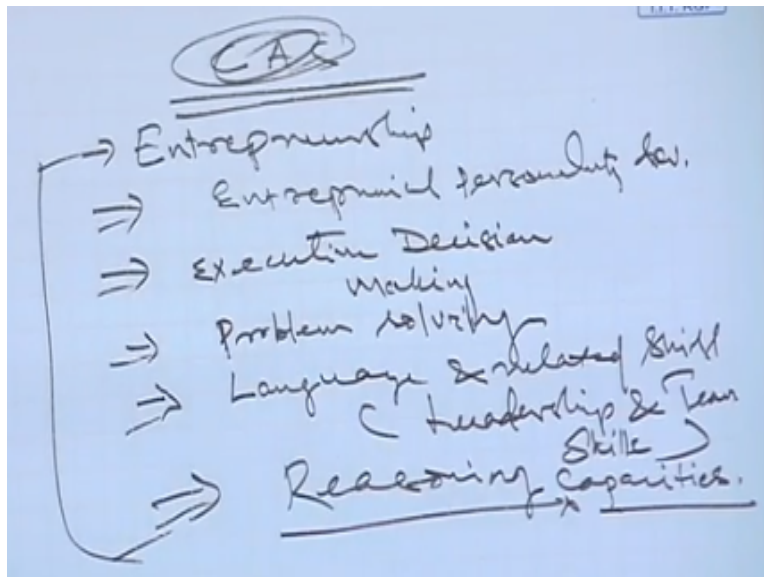 CAC
Entrepreneurship
Entreprenicil personality dev.
Execution Decision
Making
Problem solving
Language & related Skill
( Leadership & Team
Skills )
Reasoning Capacities.